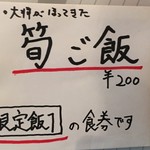 ・大将がほってきた
筍ご飯
¥200
限定飯1の食券です